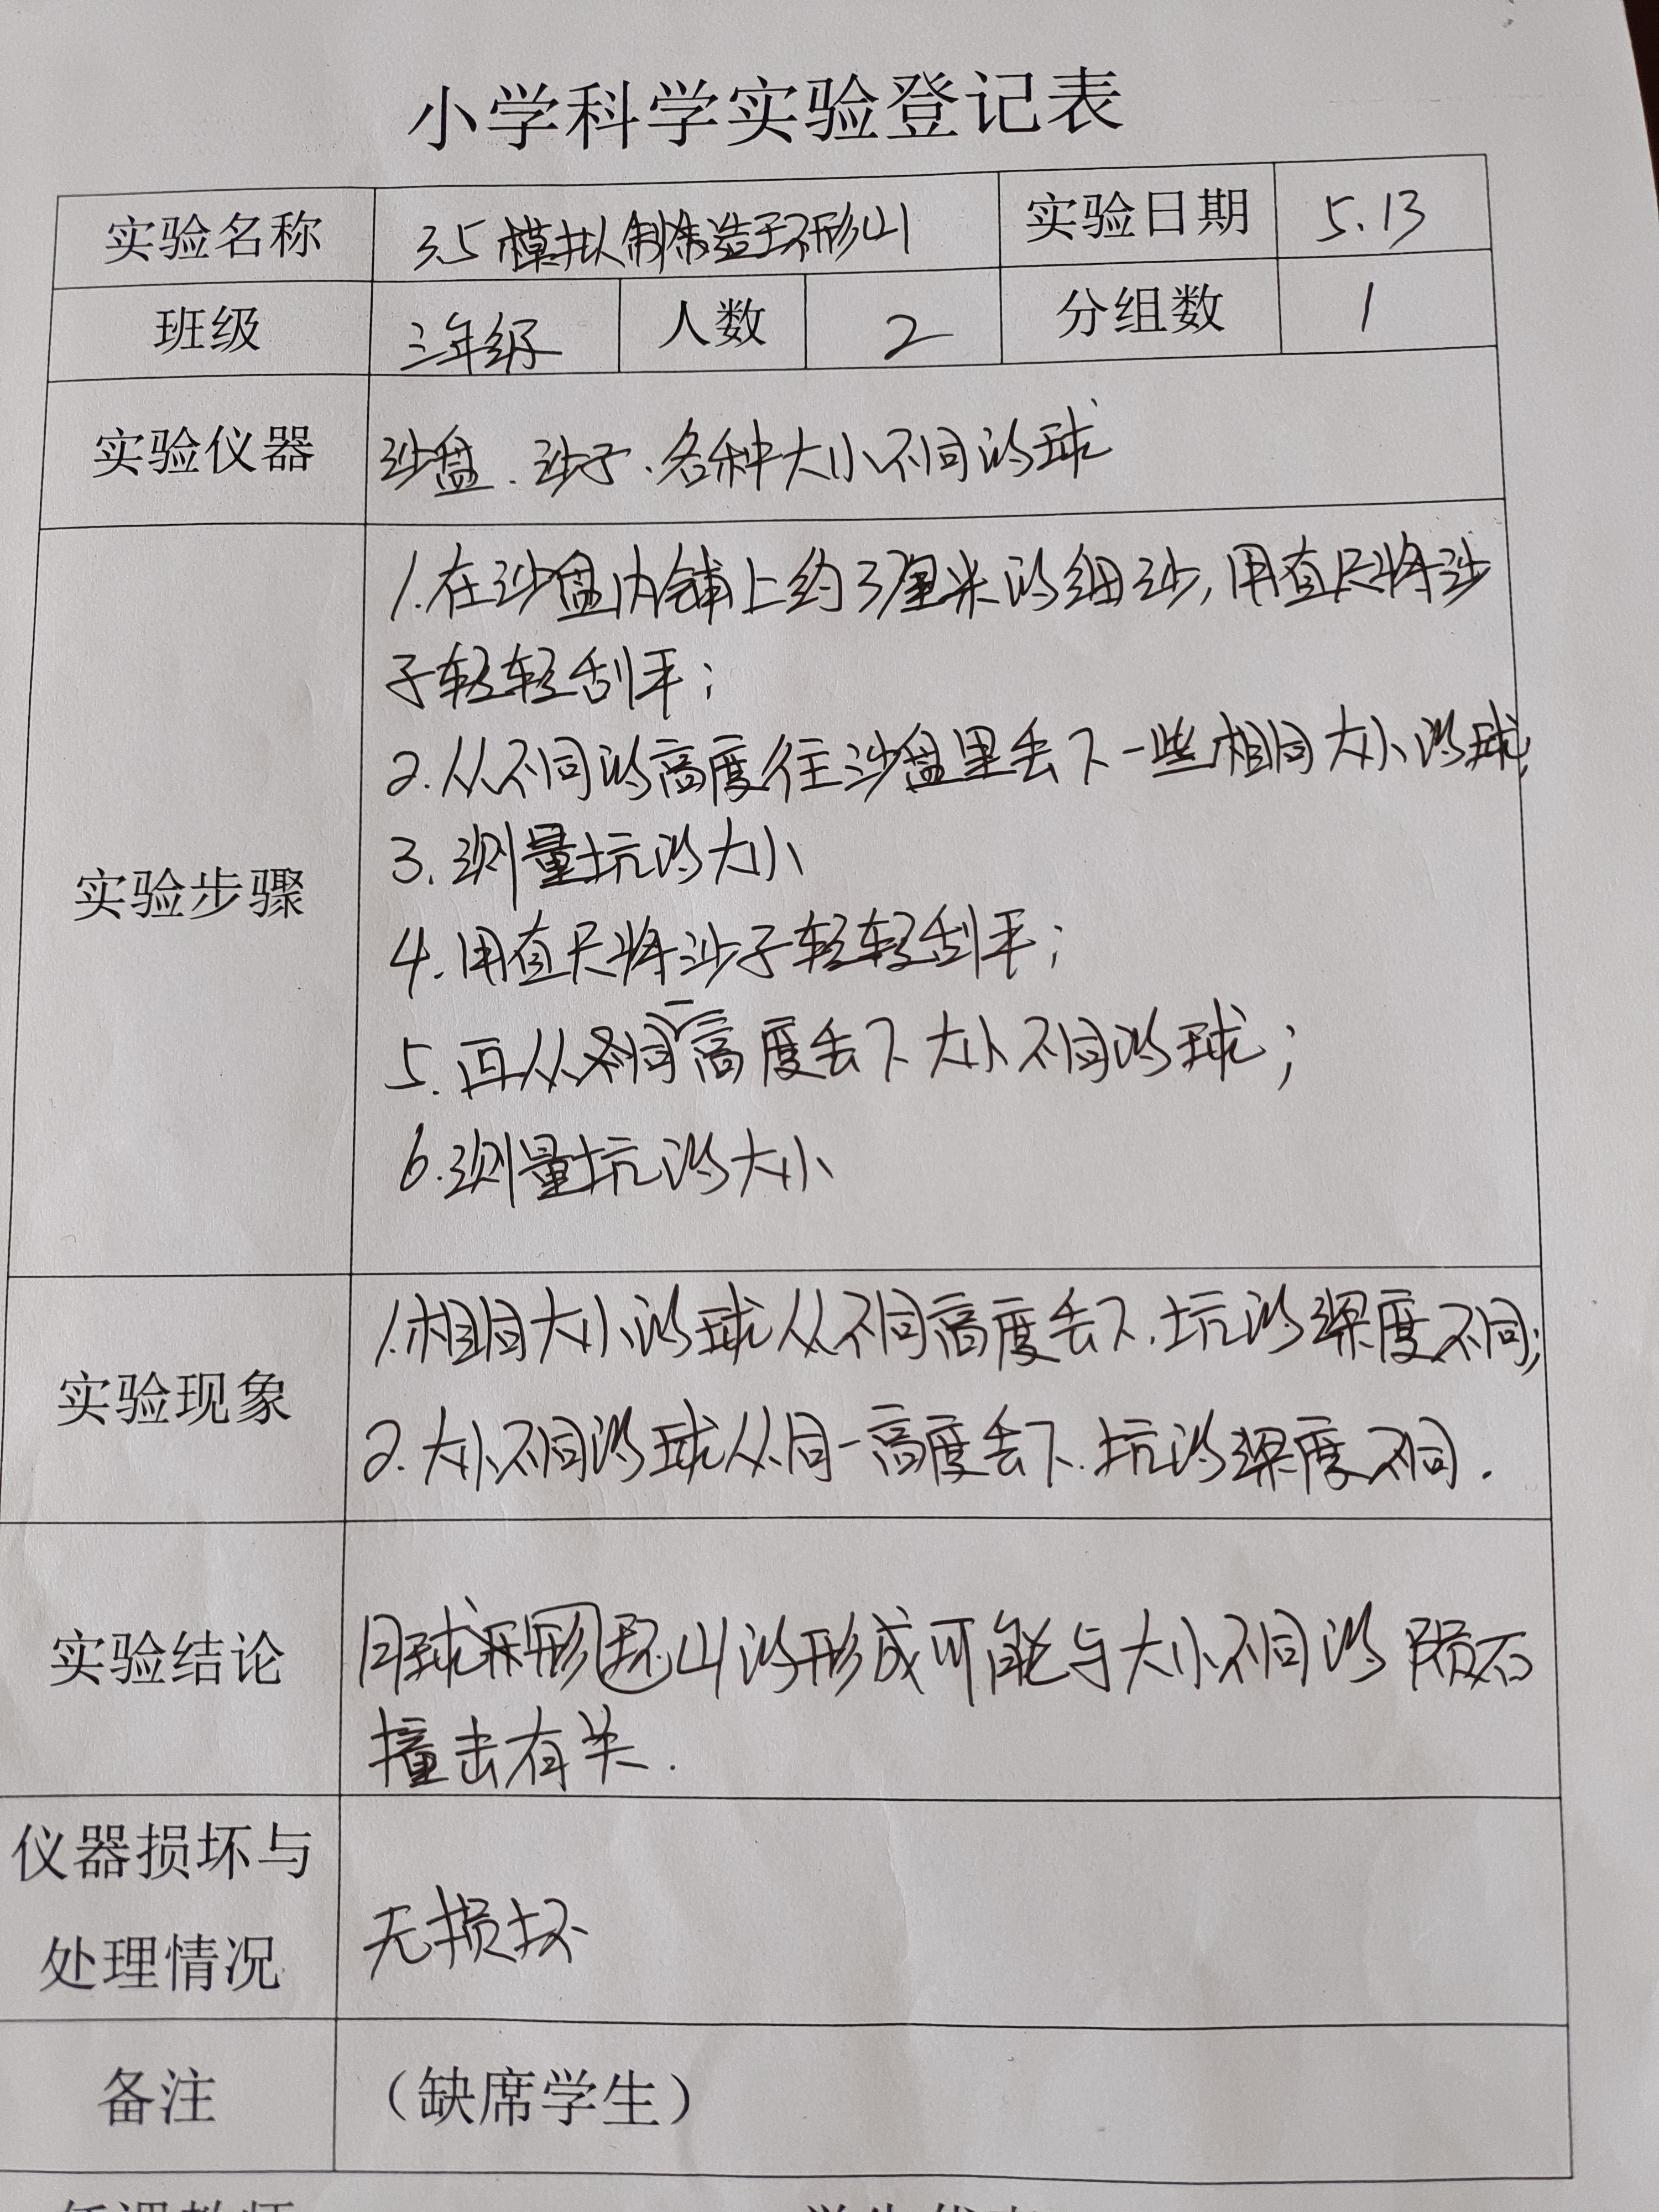 小学科学实验登记表
实验名称 3.5 模拟制造环形山 实验日期 5.13
班级 三年级 人数 2 分组数 1
实验仪器 沙盘、沙子、各种大小不同的球
实验步骤
1.在沙盘内铺上约3厘米的细沙,用直尺将沙
子轻轻刮平;
2.从不同的高度往沙盘里丢下一些相同大小的球;
3.测量坑的大小
4.用直尺将沙子轻轻刮平;
5.再从同一高度丢下大小不同的球;
6.测量坑的大小
实验现象
1.相同大小的球从不同高度丢下,坑的深度不同;
2.大小不同的球从同一高度丢下,坑的深度不同.
实验结论
月球环形山的形成可能与大小不同的陨石
撞击有关.
仪器损坏与
处理情况
无损坏
备注 (缺席学生)